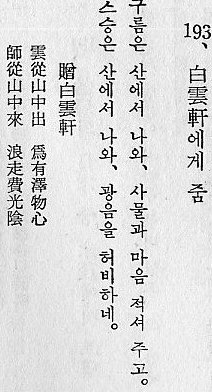 193、白雲軒에게 줌
구름은 산에서 나와、사물과 마음 적셔 주고。
스승은 산에서 나와、광음을 허비하네。
贈白雲軒
雲從山中出 爲有澤物心
師從山中來 浪走費光陰